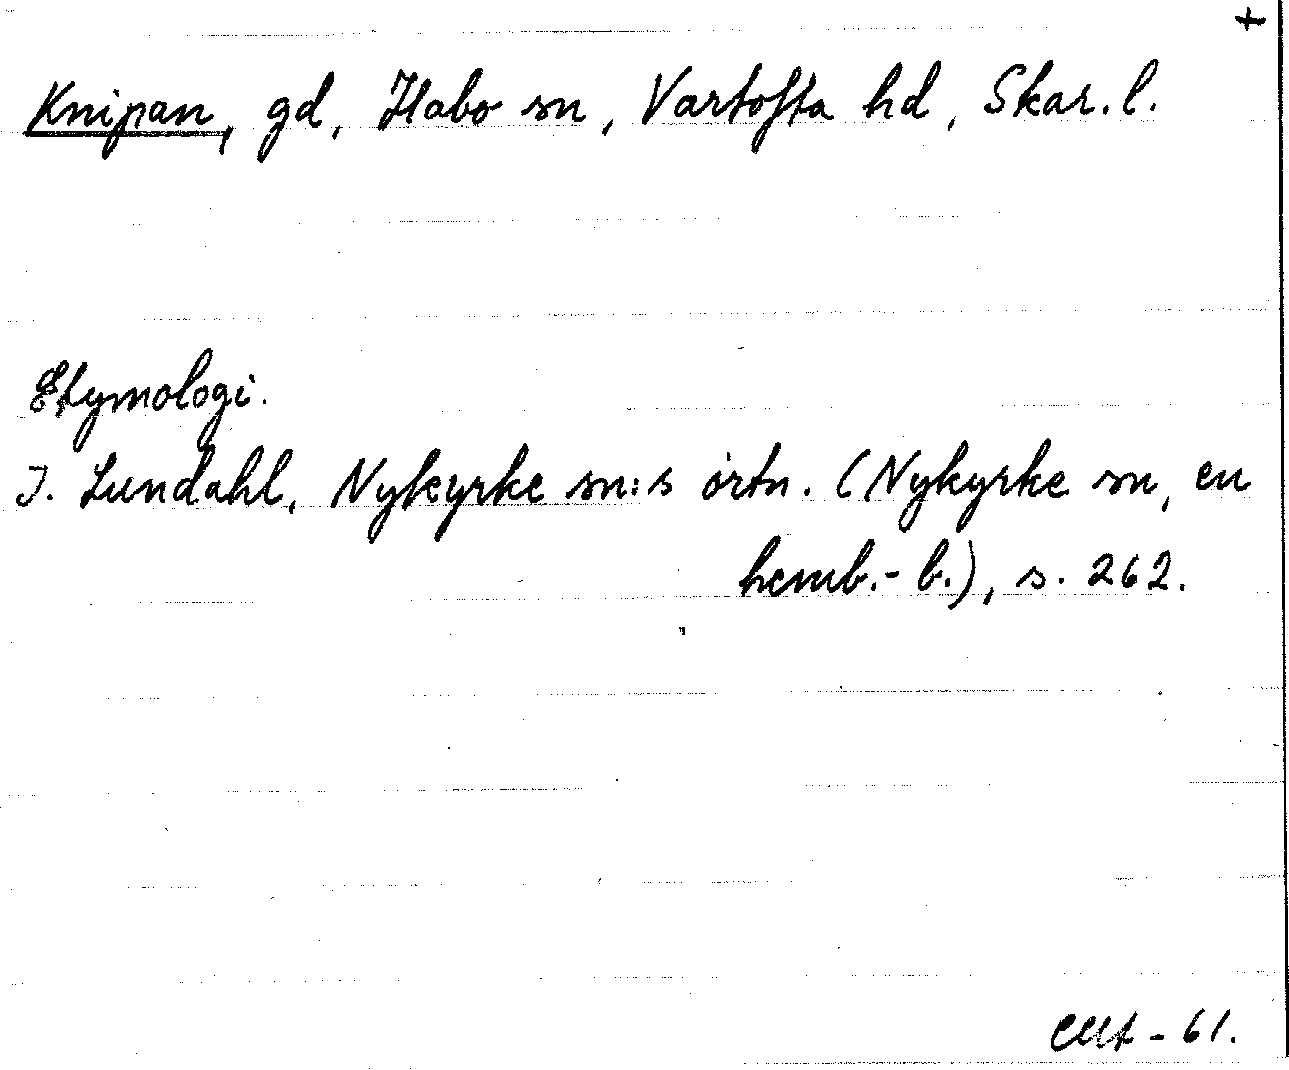 +
Knipan, gd, Habo sn, Vartofta hd, Skar. l.
Etymologi.
I. Lundahl, Nykyrke sn:s ortn. (Nykyrke sn, en
hemb.-b.), s. 262.
-61.